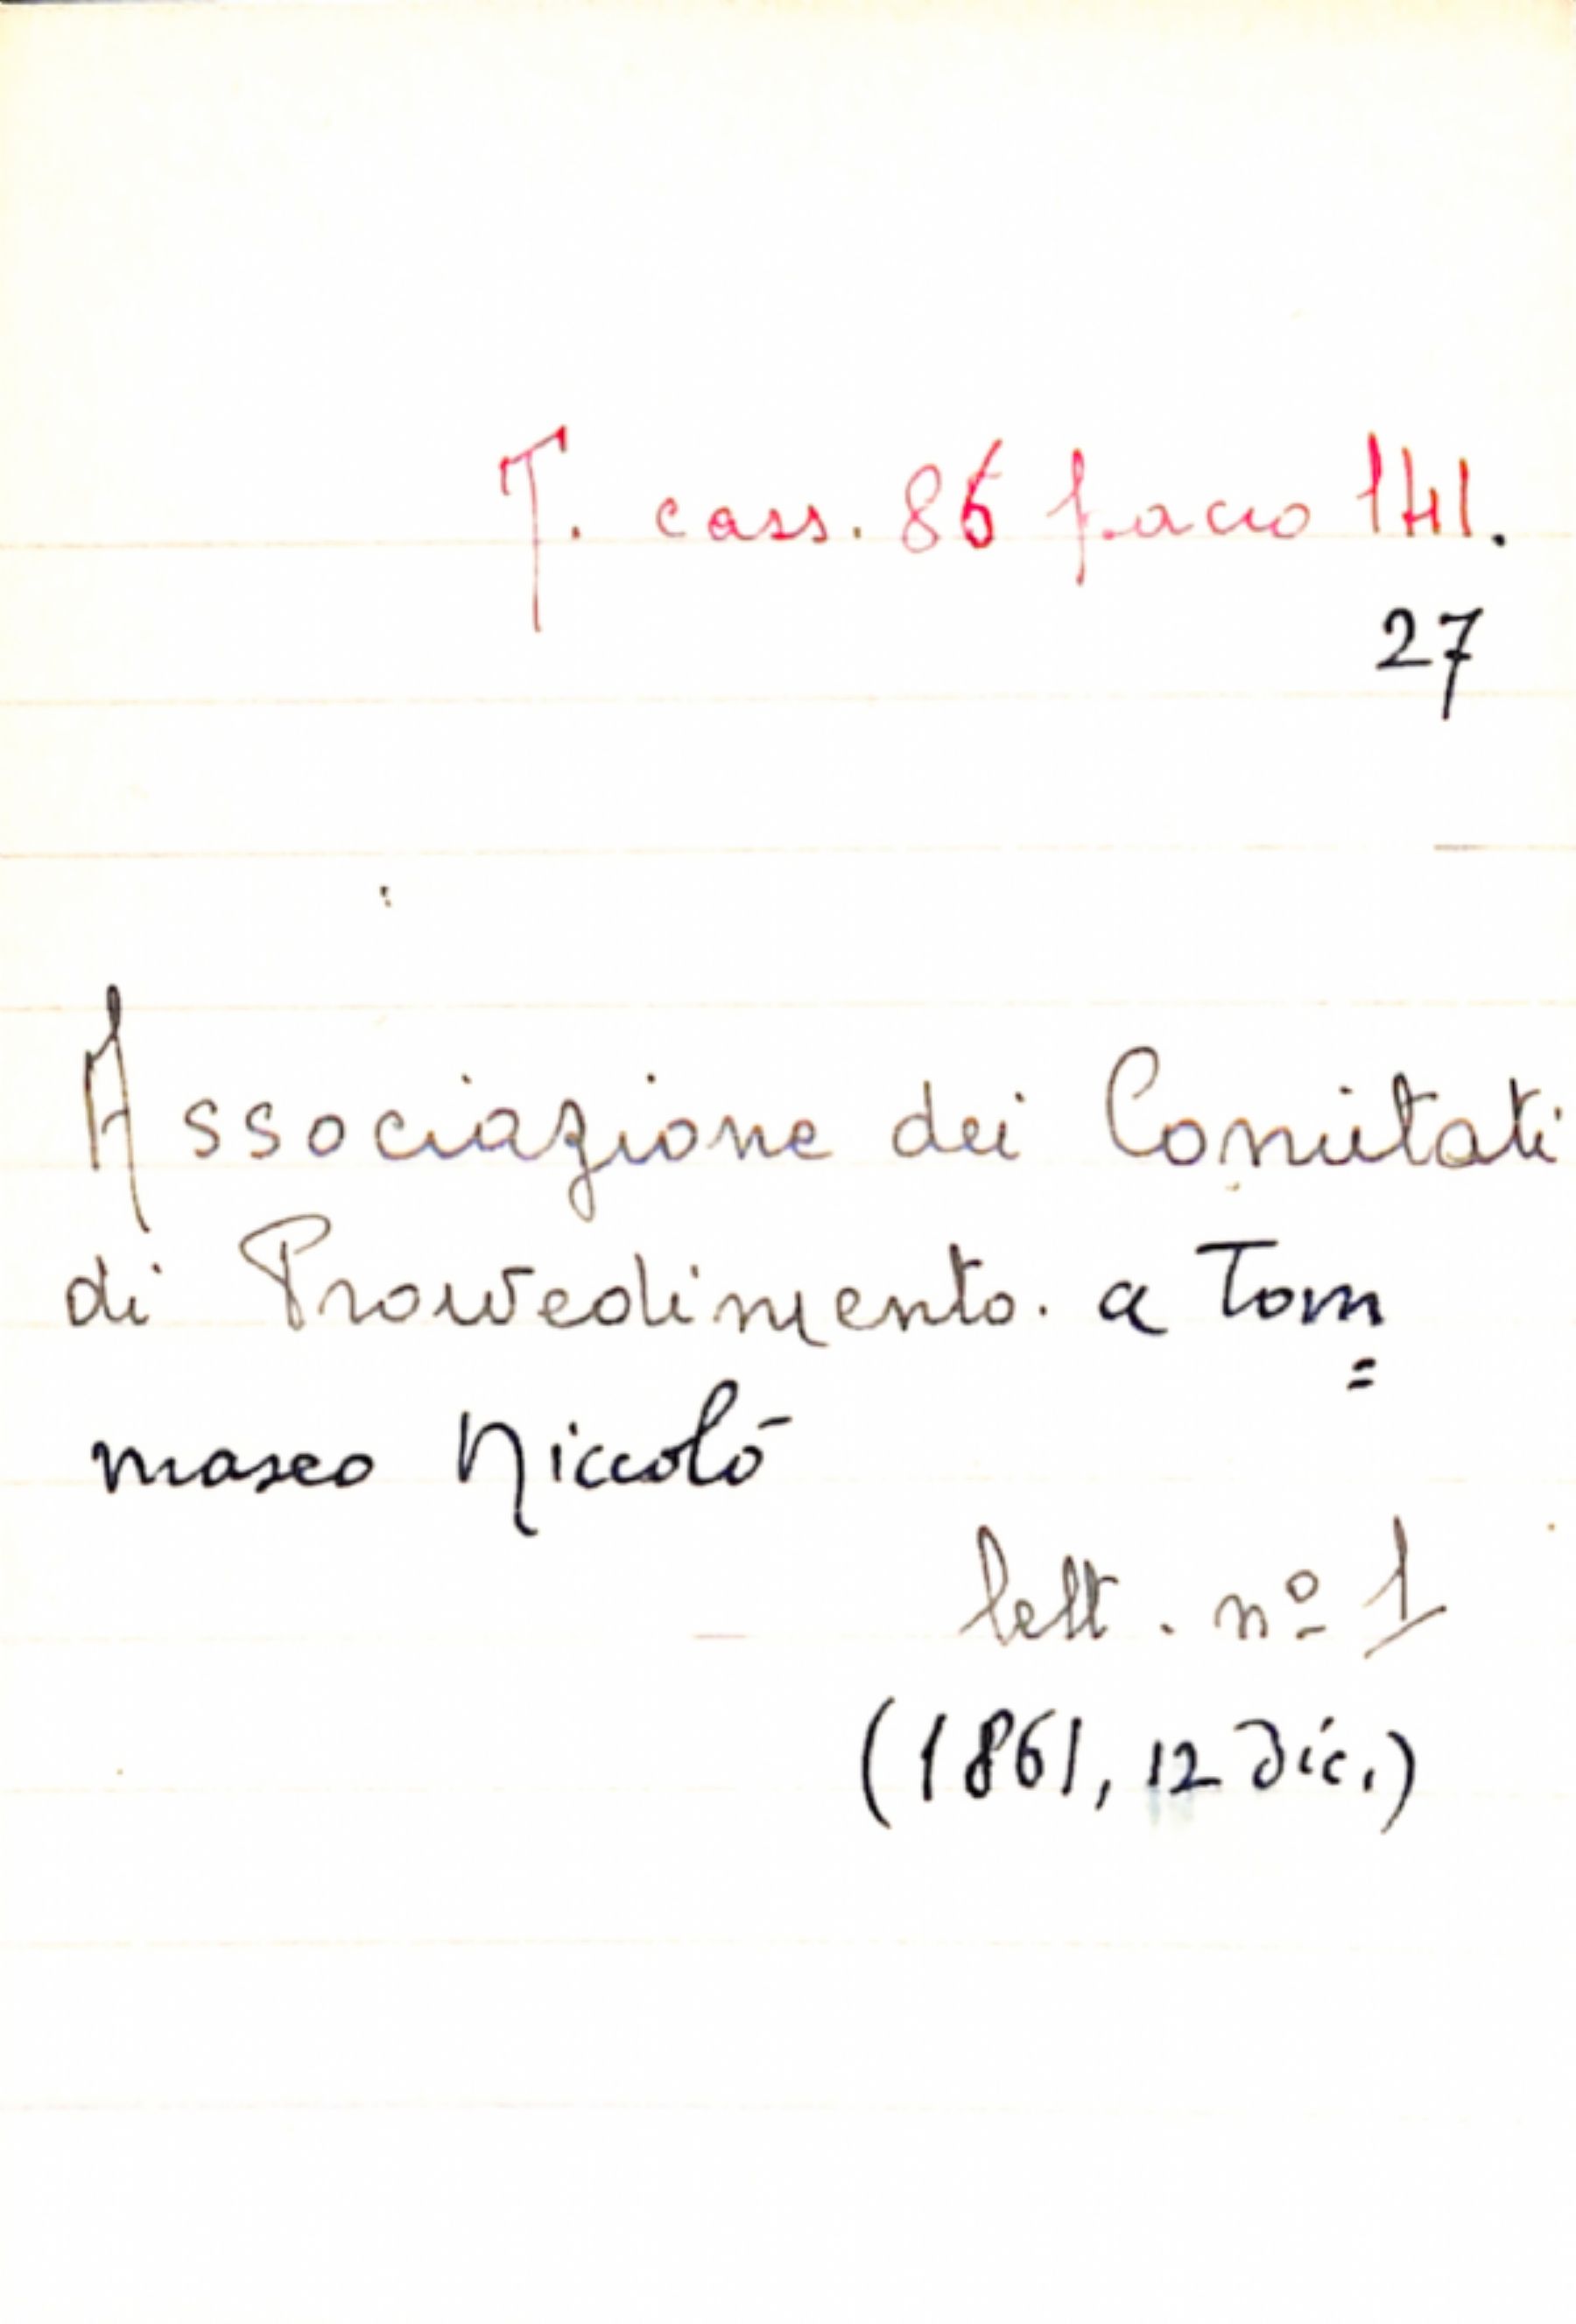 T. cass. 86 pacco 141.
27
Associazione dei Comitati
di Provvedimento. a Tom=
maseo Niccolò
lett. nº 1
(1861, 12 dic.)